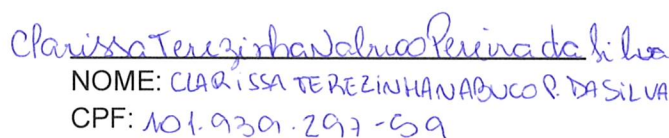 Clarissa Terezinha Nabuco Pereira da Silva
NOME: CLARISSA TEREZINHA NABUCO P. DA SILVA
CPF: 101.939.297-59